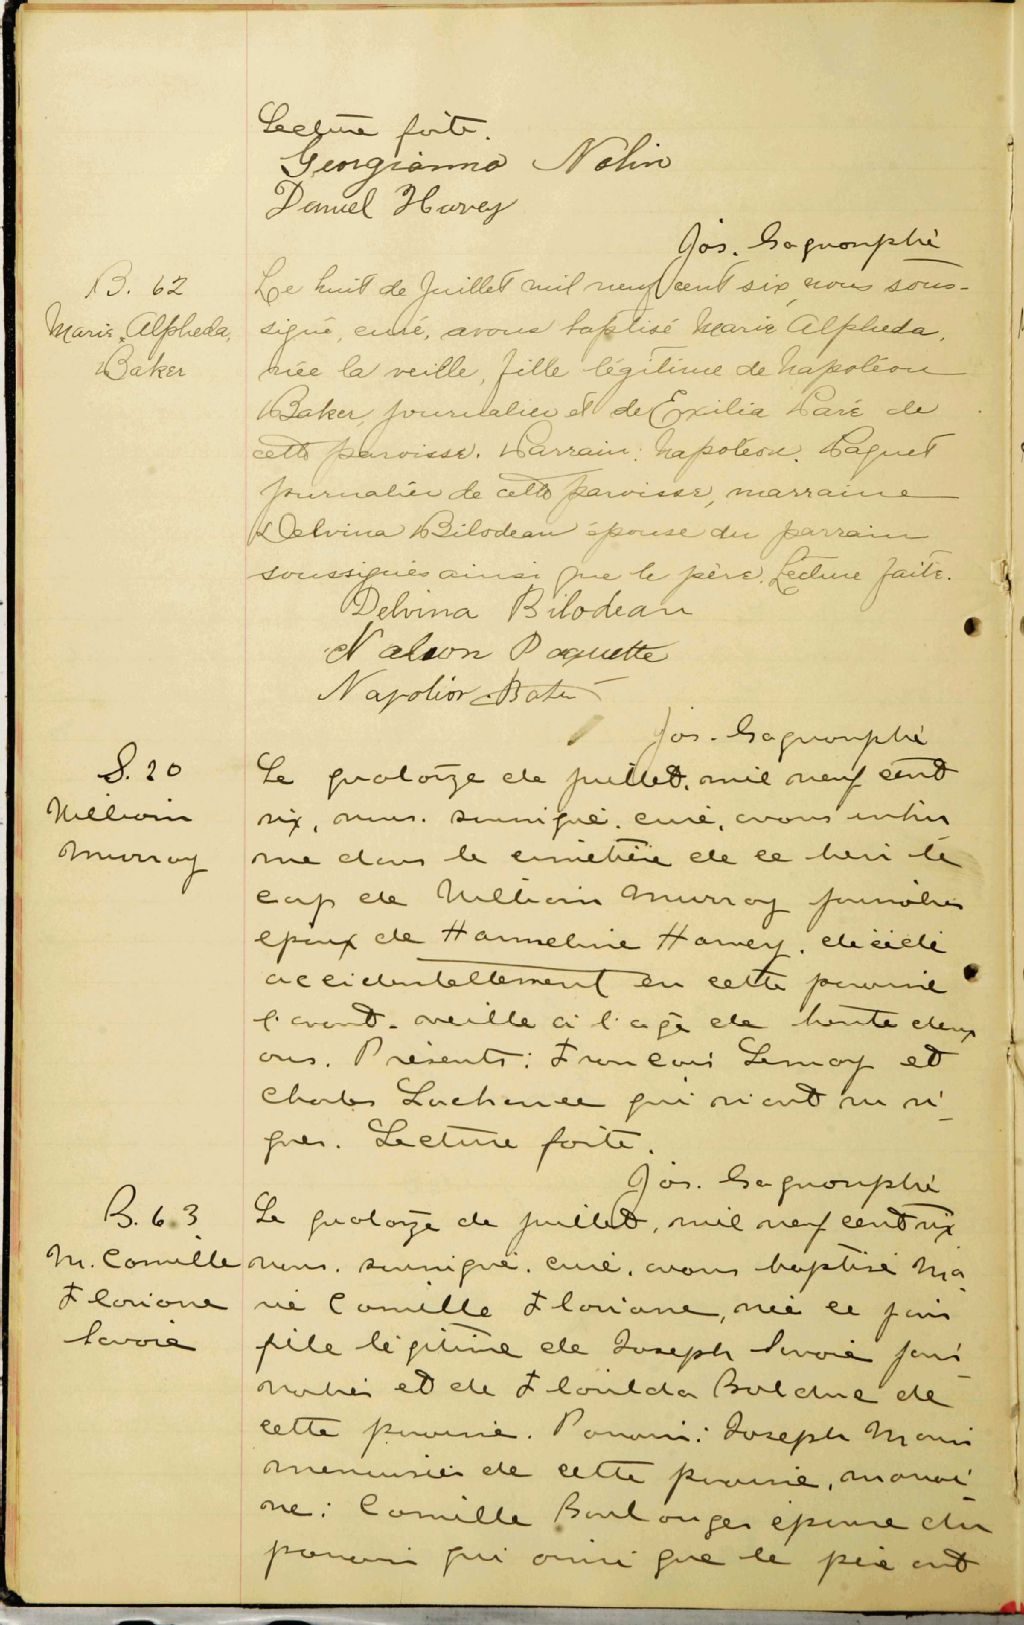 Lecture faite.
Georgianna Nolin
Daniel Harvey
Jos. Gagnon ptre
B. 62
Marie, Alpheda,
Baker
Le huit de Juillet mil neuf cent six, nous sous-
signé, curé, avons baptisé Marie Alpheda,
née la veille, fille légitime de Napoléon
Baker, journalier et de Exilia Paré de
cette paroisse. Parrain: Napoléon Paquet
journalier de cette paroisse, marraine
Delvina Bilodeau épouse du parrain
soussignés ainsi que le père. Lecture faite.
Delvina Bilodeau
Nalson Paquette
Napolion
Jos. Gagnon ptre
S. 20
William
Murray
Le quatorze de juillet, mil neuf cent
six, nous, soussigné, curé, avons inhu
mé dans le cimetière de ce lieu le
corps de William Murray journalier
époux de Harmeline Harvey, décédé
accidentellement en cette paroisse
l'avant-veille à l'age de trente deux
ans. Présents: François Lemay et
Charles Lachance qui n'ont su si-
gner. Lecture faite.
Jos. Gagnon ptre
B. 63
M. Camille
Floriane
Savoie
Le quatorze de juillet, mil neuf cent six
nous, soussigné, curé, avons baptisé Ma
rie Camille Floriane, née ce jour
fille légitime de Joseph Savoie jour
nalier et de Floilda Bolduc de
cette paroisse. Parrain: Joseph
menuisier de cette paroisse, marrai
ne: Camille Boulanger épouse du
parrain qui ainsi que le père ont